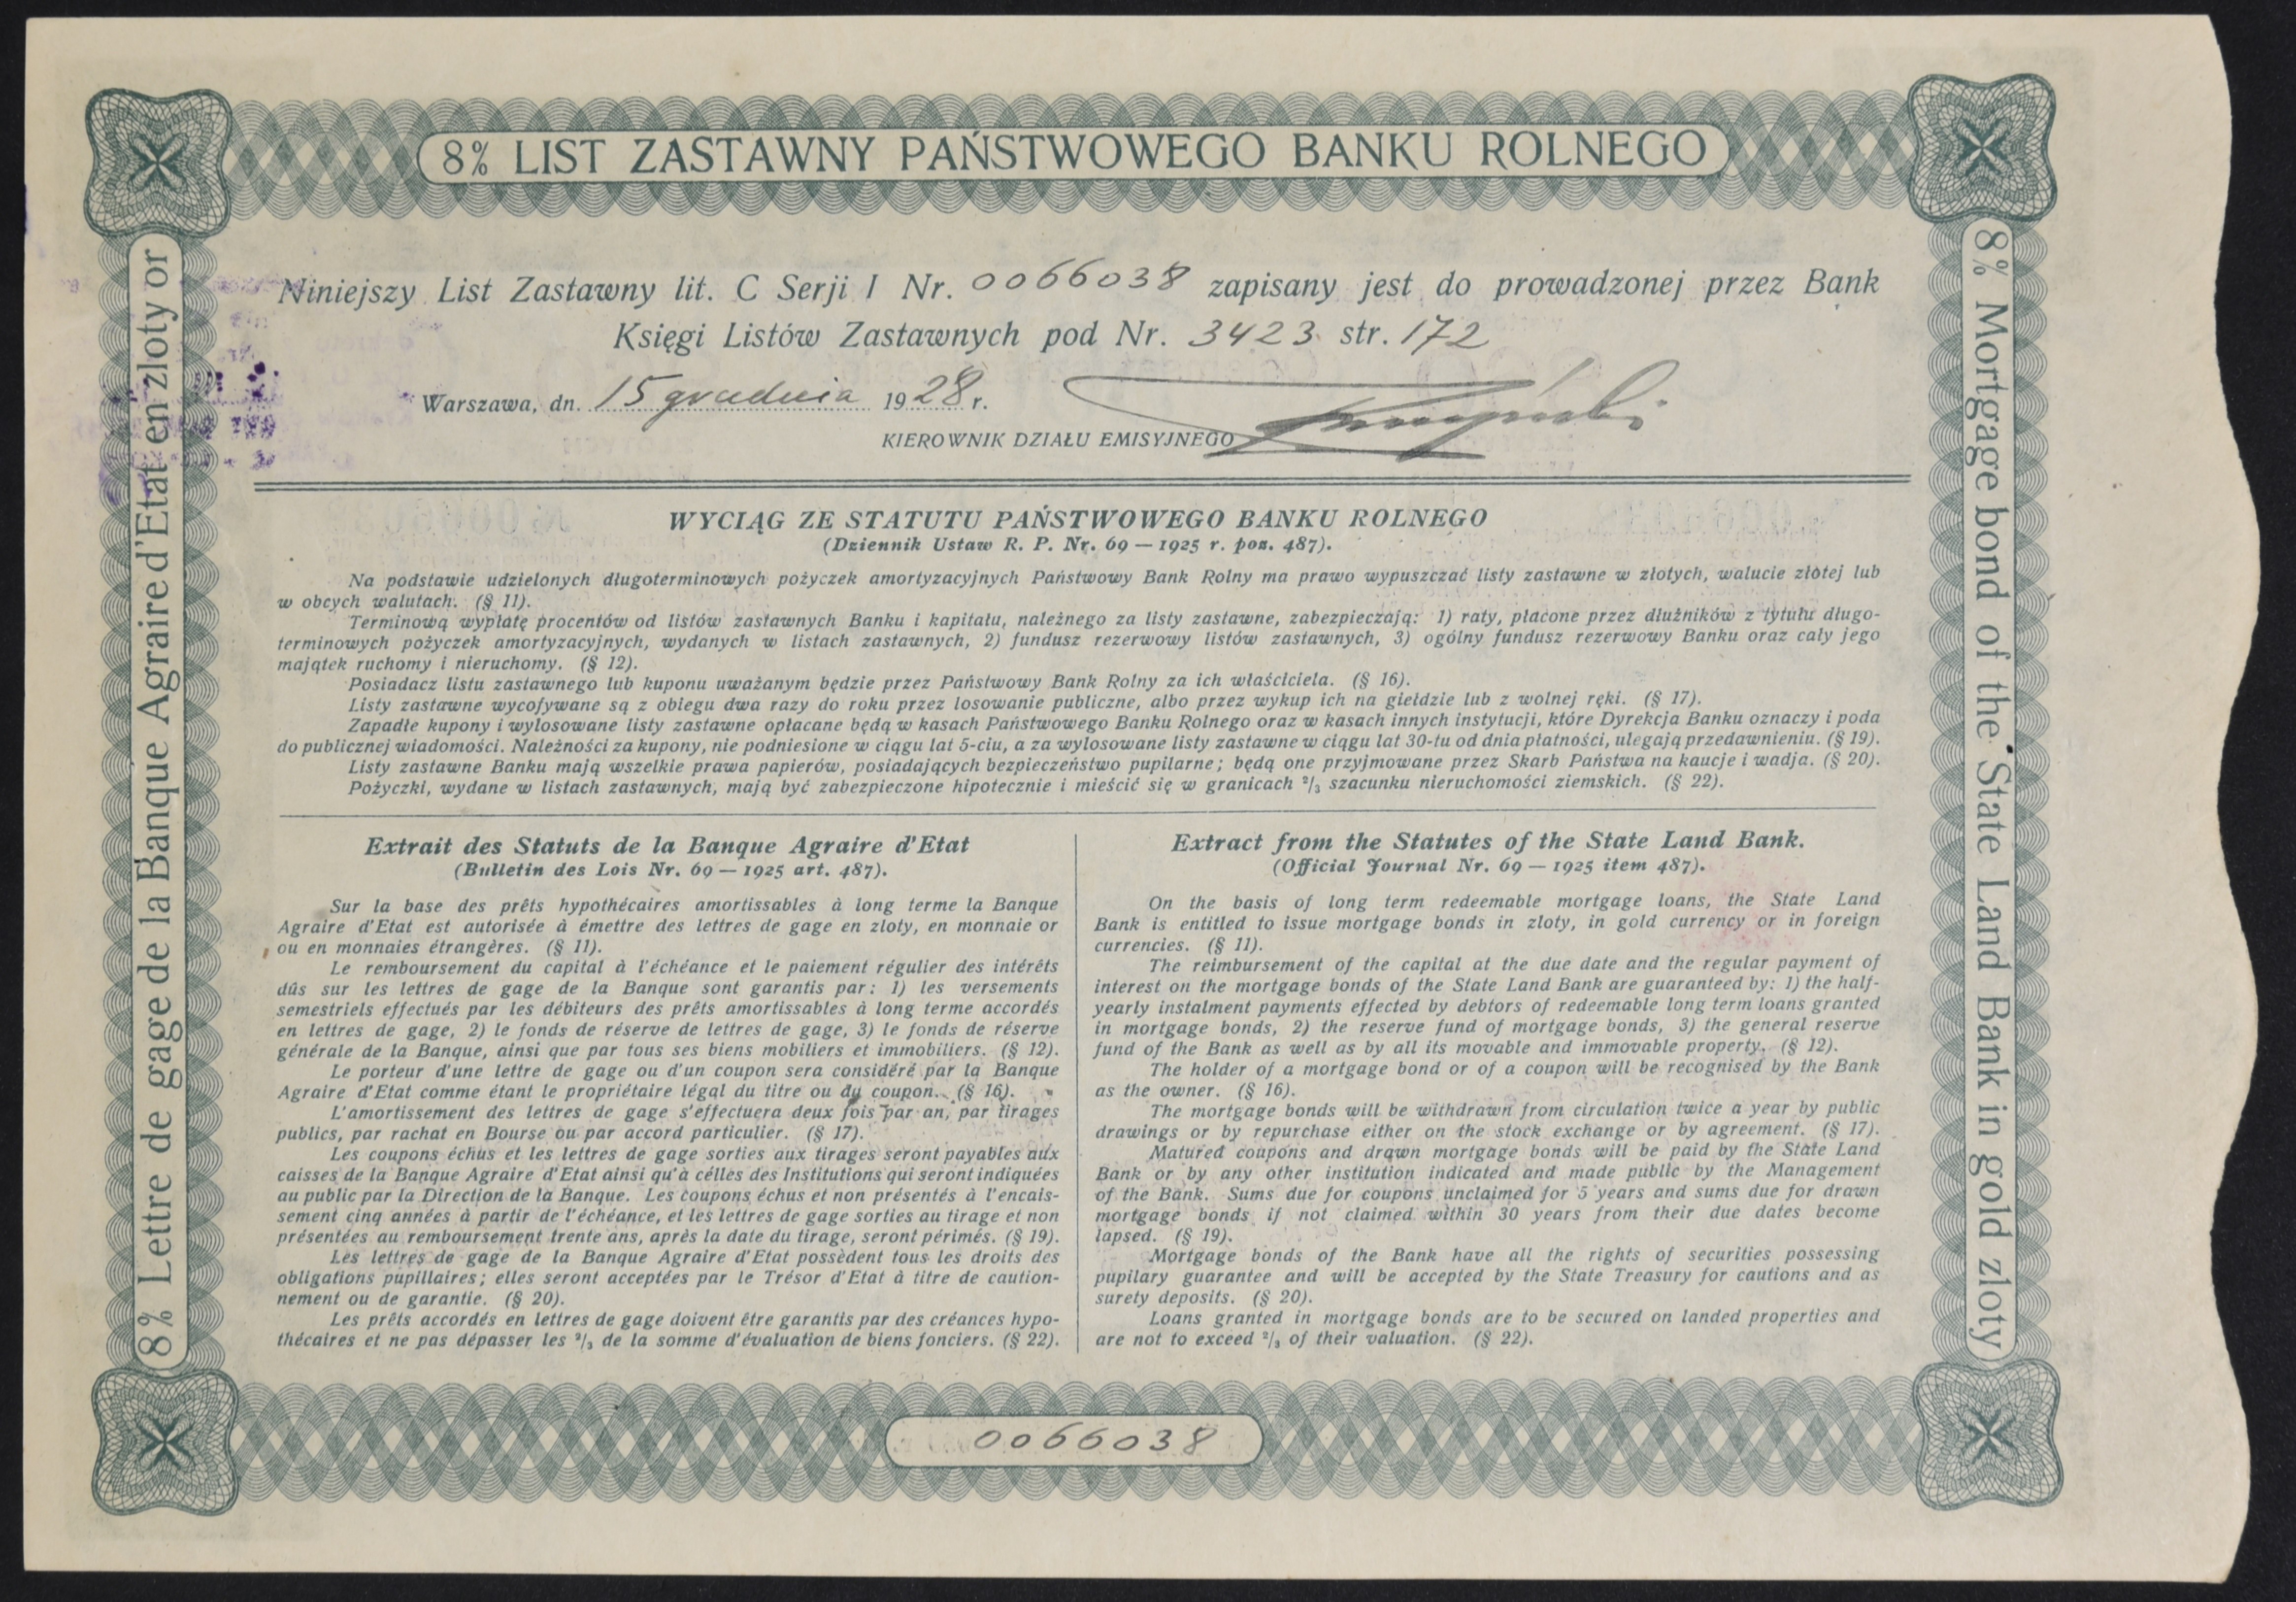 8% LIST ZASTAWNY PAŃSTWOWEGO BANKU ROLNEGO
Niniejszy List Zastawny lit. C Serji I Nr. 0066038 zapisany jest do prowadzonej przez Bank
Księgi Listów Zastawnych pod Nr. 3423 str. 172
Warszawa, dn. 15 grudnia 1928 r.
KIEROWNIK DZIAŁU EMISYJNEGO
WYCIĄG ZE STATUTU PAŃSTWOWEGO BANKU ROLNEGO
(Dziennik Ustaw R. P. Nr. 69 — 1925 r. poz. 487).
Na podstawie udzielonych długoterminowych pożyczek amortyzacyjnych Państwowy Bank Rolny ma prawo wypuszczać listy zastawne w złotych, walucie złotej lub
w obcych walutach. (§ 11).
Terminową wypłatę procentów od listów zastawnych Banku i kapitału, należnego za listy zastawne, zabezpieczają: 1) raty, płacone przez dłużników z tytułu długo-
terminowych pożyczek amortyzacyjnych, wydanych w listach zastawnych, 2) fundusz rezerwowy listów zastawnych, 3) ogólny fundusz rezerwowy Banku oraz cały jego
majątek ruchomy i nieruchomy. (§ 12).
Posiadacz listu zastawnego lub kuponu uważanym będzie przez Państwowy Bank Rolny za ich właściciela. (§ 16).
Listy zastawne wycofywane są z obiegu dwa razy do roku przez losowanie publiczne, albo przez wykup ich na giełdzie lub z wolnej ręki. (§ 17).
Zapadłe kupony i wylosowane listy zastawne opłacane będą w kasach Państwowego Banku Rolnego oraz w kasach innych instytucji, które Dyrekcja Banku oznaczy i poda
do publicznej wiadomości. Należności za kupony, nie podniesione w ciągu lat 5-ciu, a za wylosowane listy zastawne w ciągu lat 30-tu od dnia płatności, ulegają przedawnieniu. (§ 19).
Listy zastawne Banku mają wszelkie prawa papierów, posiadających bezpieczeństwo pupilarne; będą one przyjmowane przez Skarb Państwa na kaucje i wadja. (§ 20).
Pożyczki, wydane w listach zastawnych, mają być zabezpieczone hipotecznie i mieścić się w granicach ²/₃ szacunku nieruchomości ziemskich. (§ 22).
Extrait des Statuts de la Banque Agraire d'Etat
(Bulletin des Lois Nr. 69 — 1925 art. 487).
Sur la base des prêts hypothécaires amortissables à long terme la Banque
Agraire d'Etat est autorisée à émettre des lettres de gage en zloty, en monnaie or
ou en monnaies étrangères. (§ 11).
Le remboursement du capital à l'échéance et le paiement régulier des intérêts
dûs sur les lettres de gage de la Banque sont garantis par: 1) les versements
semestriels effectués par les débiteurs des prêts amortissables à long terme accordés
en lettres de gage, 2) le fonds de réserve de lettres de gage, 3) le fonds de réserve
générale de la Banque, ainsi que par tous ses biens mobiliers et immobiliers. (§ 12).
Le porteur d'une lettre de gage ou d'un coupon sera considéré par la Banque
Agraire d'Etat comme étant le propriétaire légal du titre ou du coupon. (§ 16).
L'amortissement des lettres de gage s'effectuera deux fois par an, par tirages
publics, par rachat en Bourse ou par accord particulier. (§ 17).
Les coupons échus et les lettres de gage sorties aux tirages seront payables aux
caisses de la Banque Agraire d'Etat ainsi qu'à célles des Institutions qui seront indiquées
au public par la Direction de la Banque. Les coupons échus et non présentés à l'encais-
sement cinq années à partir de l'échéance, et les lettres de gage sorties au tirage et non
présentées au remboursement trente ans, après la date du tirage, seront périmés. (§ 19).
Les lettres de gage de la Banque Agraire d'Etat possèdent tous les droits des
obligations pupillaires; elles seront acceptées par le Trésor d'Etat à titre de caution-
nement ou de garantie. (§ 20).
Les prêts accordés en lettres de gage doivent être garantis par des créances hypo-
thécaires et ne pas dépasser les ²/₃ de la somme d'évaluation de biens fonciers. (§ 22).
Extract from the Statutes of the State Land Bank.
(Official Journal Nr. 69 — 1925 item 487).
On the basis of long term redeemable mortgage loans, the State Land
Bank is entitled to issue mortgage bonds in zloty, in gold currency or in foreign
currencies. (§ 11).
The reimbursement of the capital at the due date and the regular payment of
interest on the mortgage bonds of the State Land Bank are guaranteed by: 1) the half-
yearly instalment payments effected by debtors of redeemable long term loans granted
in mortgage bonds, 2) the reserve fund of mortgage bonds, 3) the general reserve
fund of the Bank as well as by all its movable and immovable property. (§ 12).
The holder of a mortgage bond or of a coupon will be recognised by the Bank
as the owner. (§ 16).
The mortgage bonds will be withdrawn from circulation twice a year by public
drawings or by repurchase either on the stock exchange or by agreement. (§ 17).
Matured coupons and drawn mortgage bonds will be paid by the State Land
Bank or by any other institution indicated and made public by the Management
of the Bank. Sums due for coupons unclaimed for 5 years and sums due for drawn
mortgage bonds if not claimed within 30 years from their due dates become
lapsed. (§ 19).
Mortgage bonds of the Bank have all the rights of securities possessing
pupilary guarantee and will be accepted by the State Treasury for cautions and as
surety deposits. (§ 20).
Loans granted in mortgage bonds are to be secured on landed properties and
are not to exceed ²/₃ of their valuation. (§ 22).
8% Lettre de gage de la Banque Agraire d'Etat en zloty or
8% Mortgage bond of the State Land Bank in gold zloty
0066038